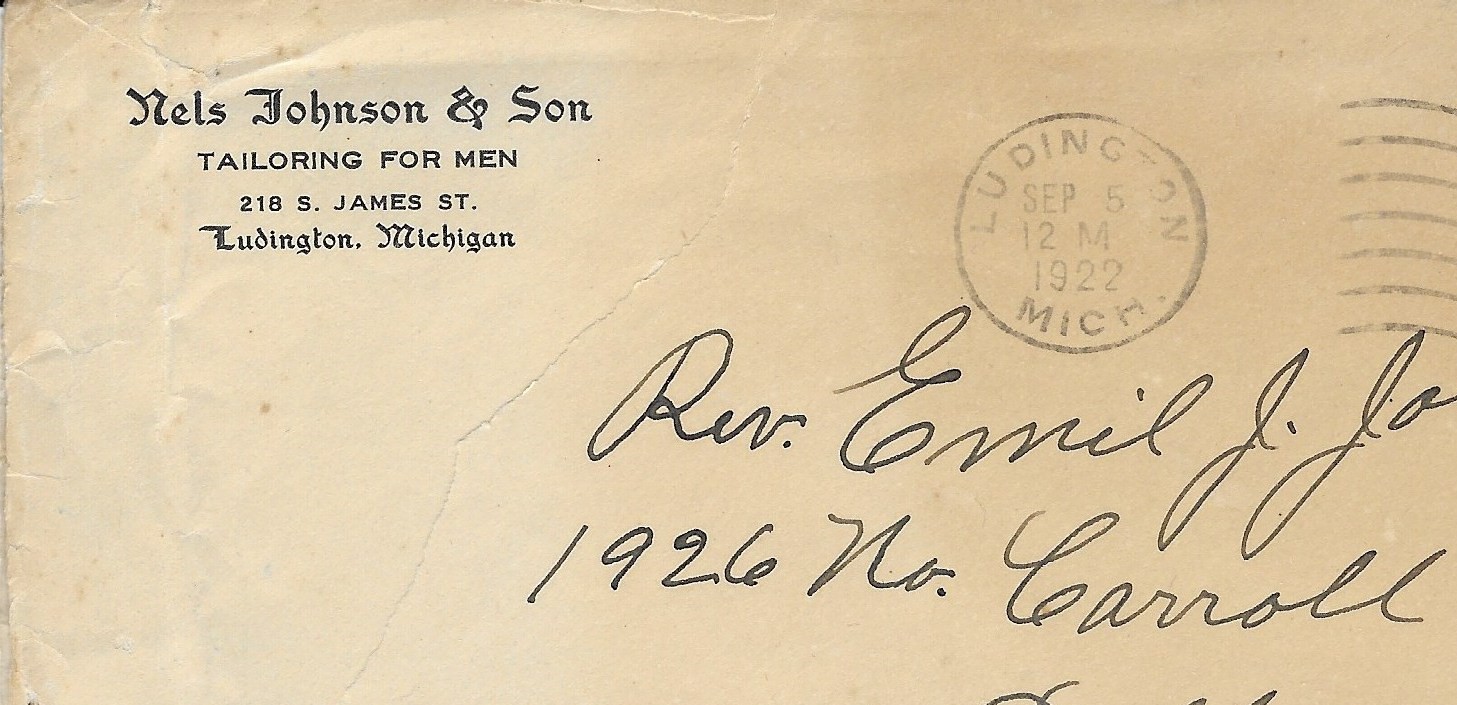 Nels Johnson & Son
TAILORING FOR MEN
218 S. JAMES ST.
Ludington, Michigan
LUDINGTON
SEP 5
12 M
1922
MICH.
Rev. Emil J. Jo
1926 No. Carroll